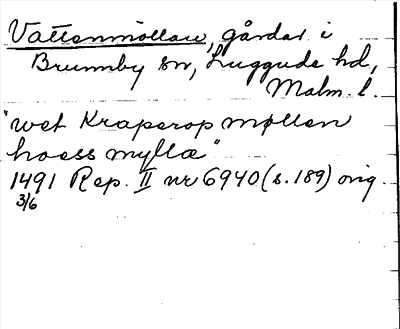 Vattenmöllan, gårdar i
Brunnby sn, Luggude hd,
Malm. l.
"wet Kraperop møllen
hoess myllæ"
1491 Rep. II nr 6940 (s. 189) orig.
3/6